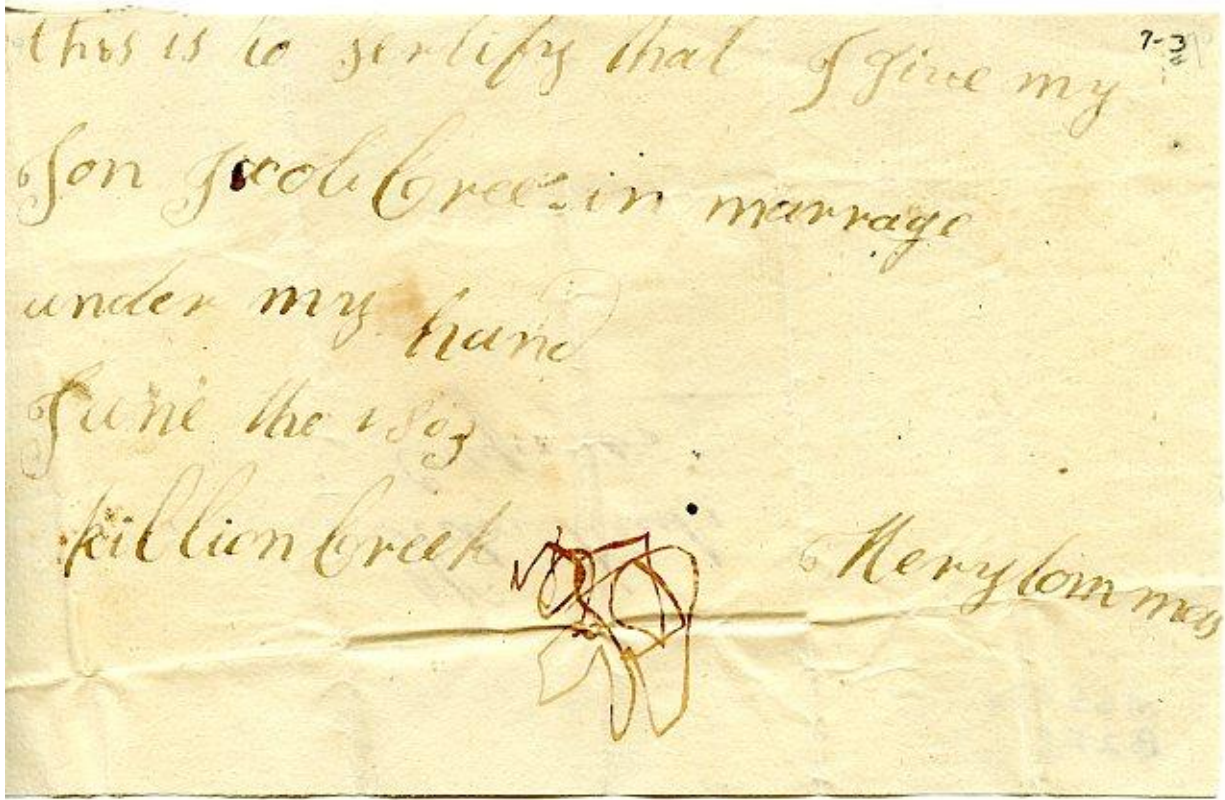 this is to sertify that I give my
7-3
Son Jacob Creek in marrage
under my hand
June the 1803
killion Creek